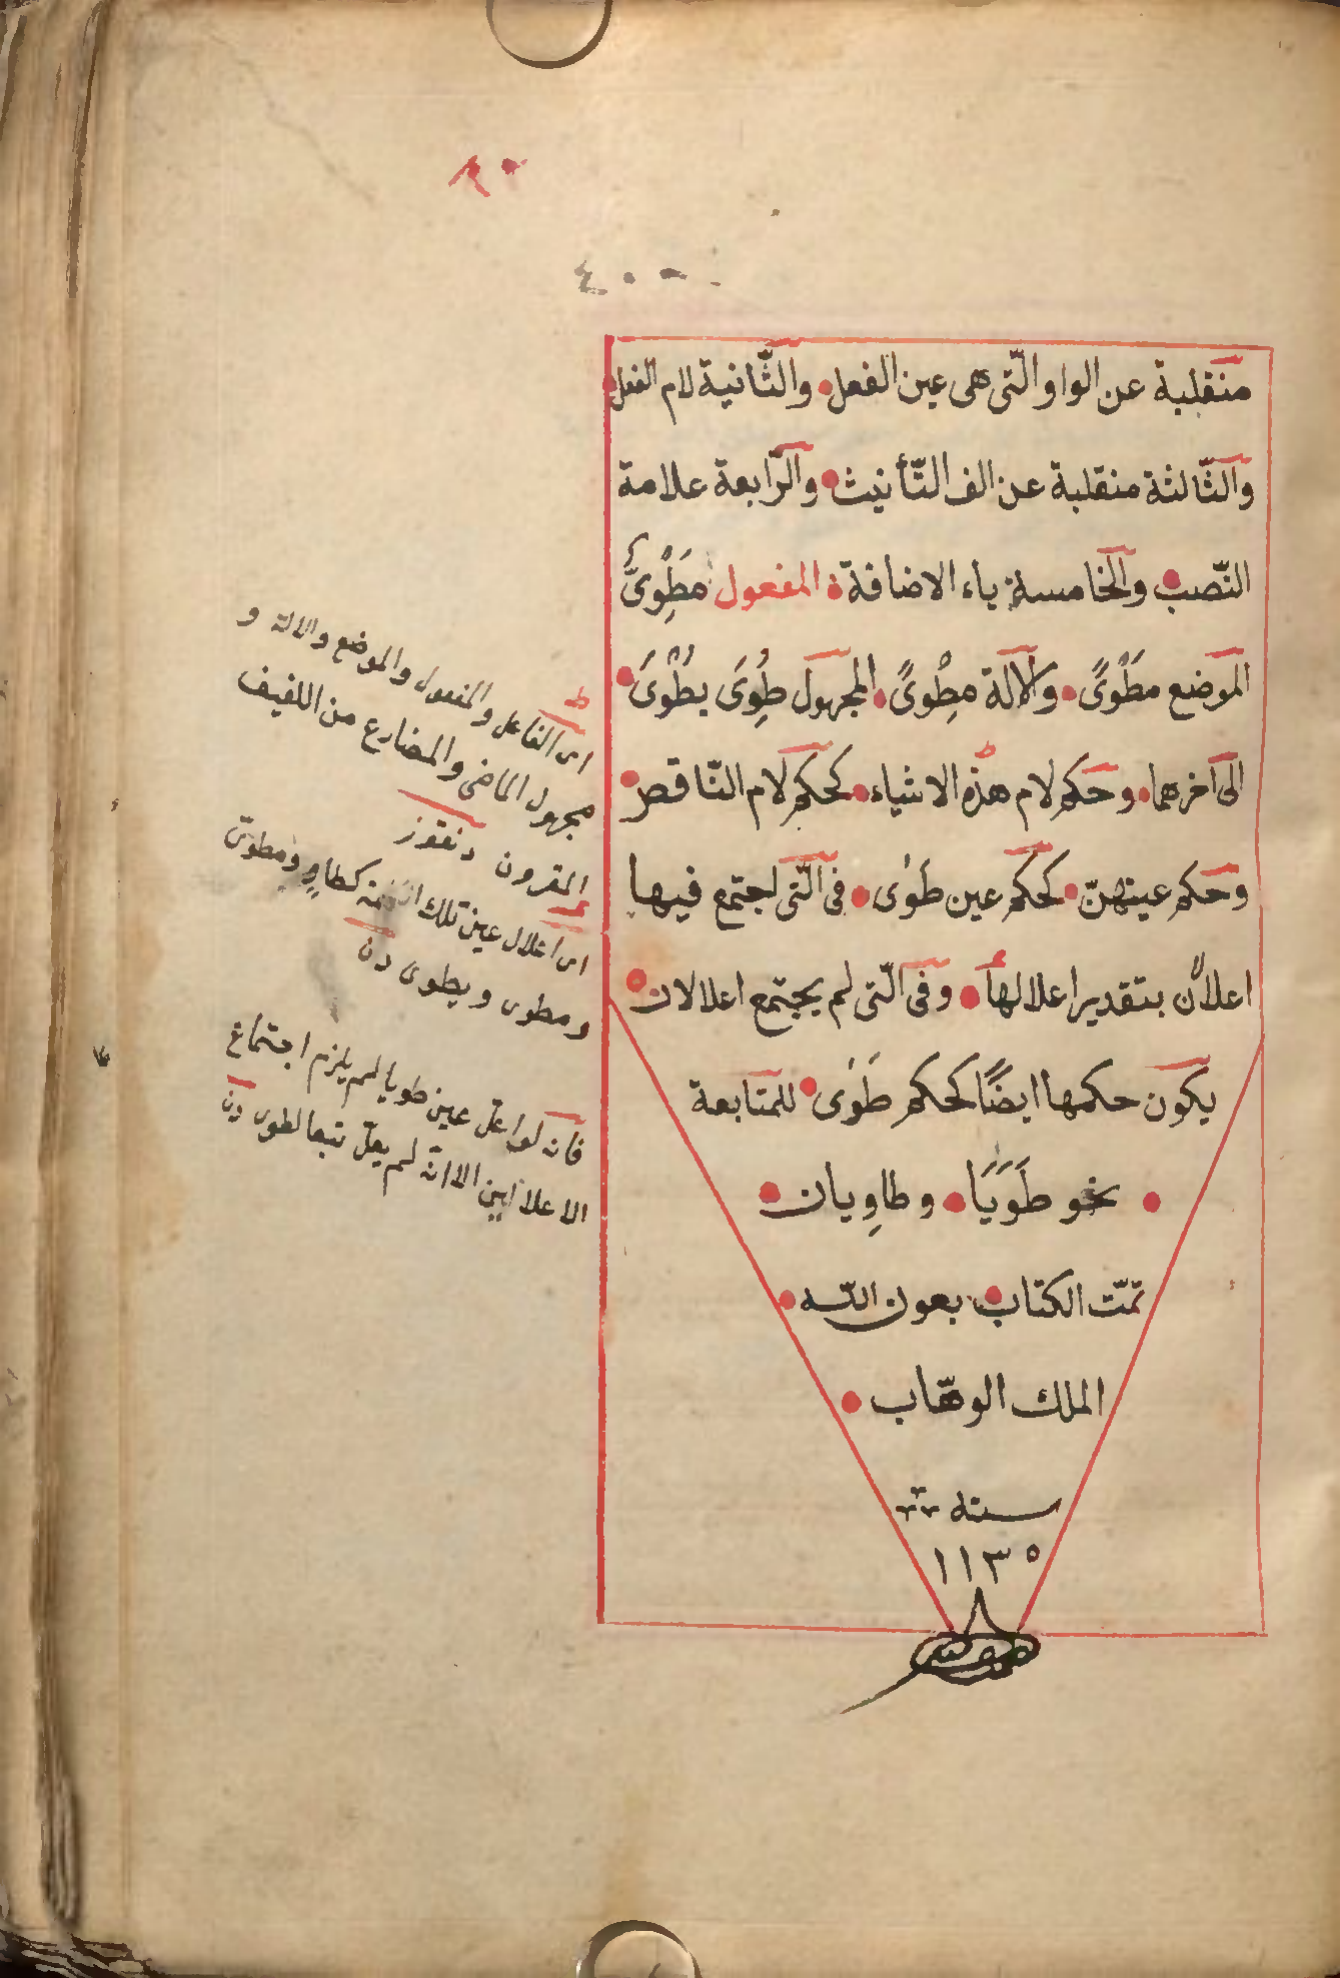 ٤٠
منقلبة عن الواو الّتى هى عين الفعل والثّانية لام الفعل
والثّالثة منقلبة عن الف التّأنيث والرّابعة علامة
النّصب والخامسة ياء الاضافة المفعول مَطْوِىٌّ
الموضع مَطْوًى والالة مِطْوًى المجهول طُوِىَ يُطْوَىٰ
الى آخرهما وحكم لام هذه الاشياء كحكم لام النّاقص
وحكم عينهنّ كحكم عين طَوٰى فى الّتى اجتمع فيها
اعلالان بتقدير اعلالها وفى الّتى لم يجتمع اعلالان
يكون حكمها ايضًا كحكم طَوٰى للمتابعة
نحو طَوَيَا وطاوِيان
تمّت الكتاب بعون اللّه
الملك الوهّاب
سنه
١١٣٥
اى الفاعل والمفعول والموضع والالة و
مجهول الماضى والمضارع من اللفيف
المقرون دنقوز
اى اعلال عين تلك كطاوٍ ومطوىّ
ومطوى ويطوى دن
فانه لو اعلّ عين طويا لم يلزم اجتماع
الاعلالين الا انّه لم يعلّ تبعا لطوى دن